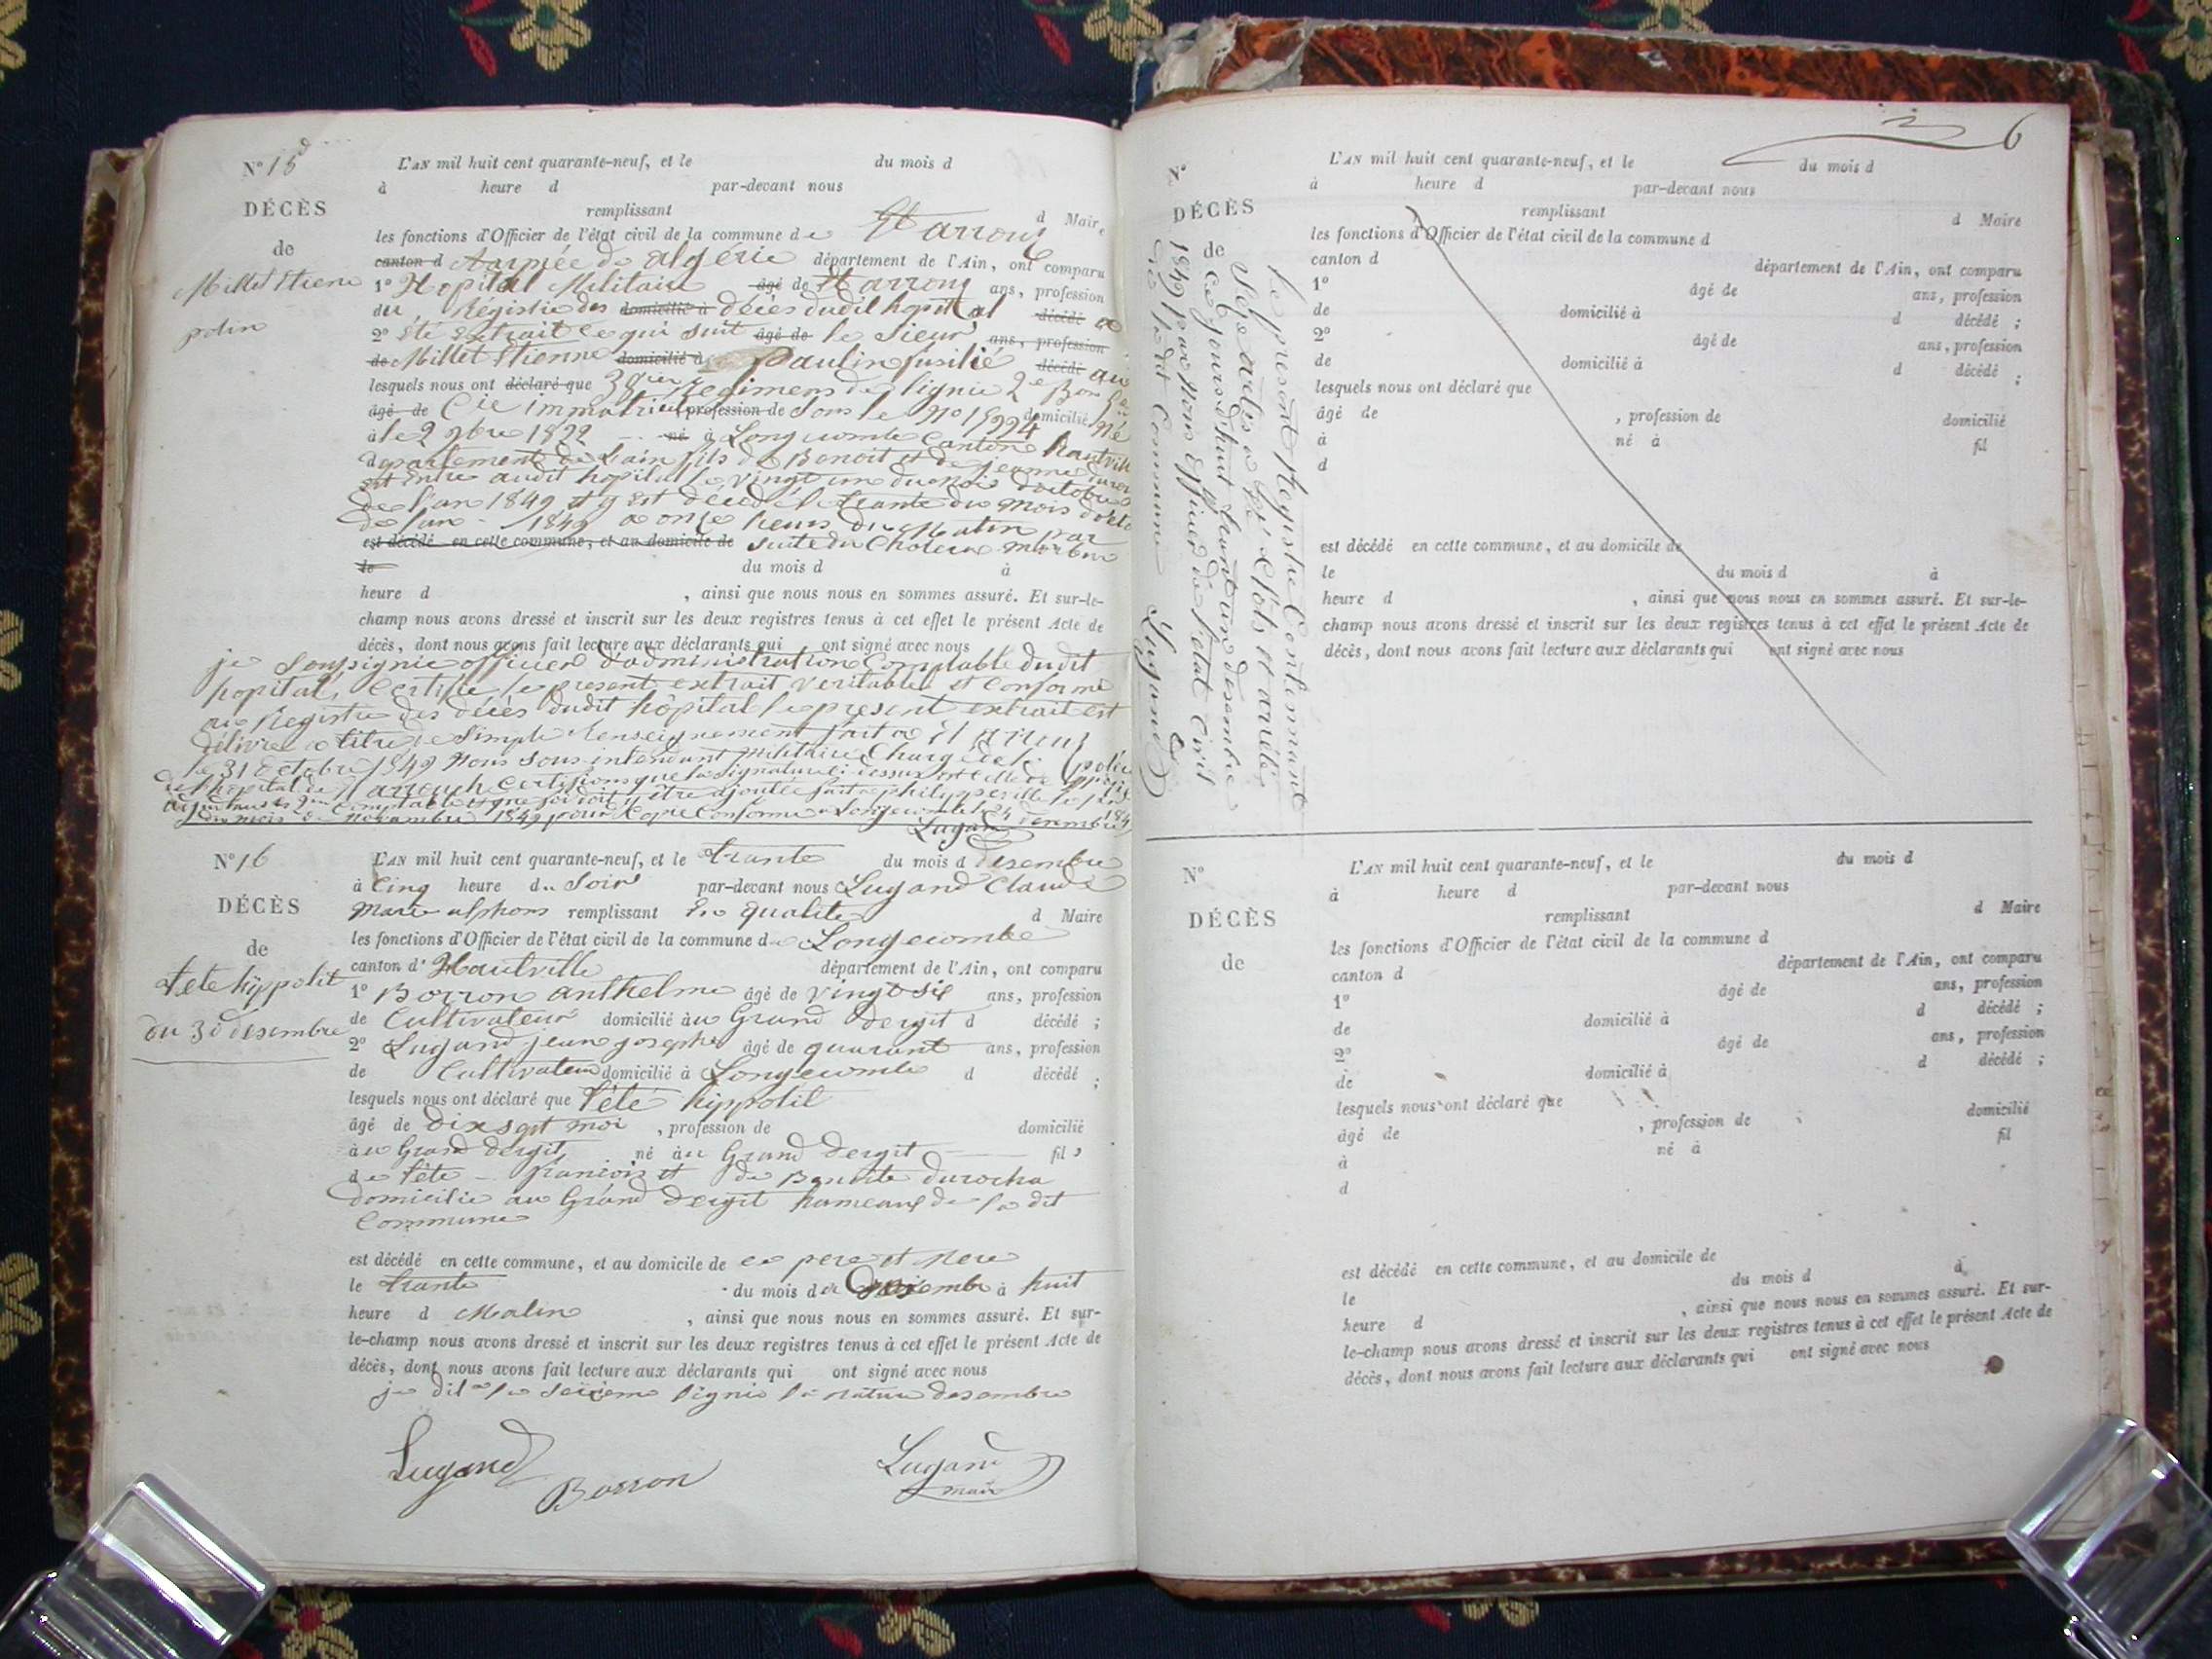 N° 15
DÉCÈS
de
Millet Etiene
polin
L'AN mil huit cent quarante-neuf, et le du mois d
à heure d par-devant nous
remplissant d Maire
les fonctions d'Officier de l'état civil de la commune de El arrouch
canton d armée de algérie département de l'Ain, ont comparu
1° Hopital Militaire âgé de El arrouch ans, profession
du Régistre des domicilié à décès dudit hopital décédé a
2° été extrait ce qui suit âgé de le sieur ans, profession
de Millet Etienne domicilié à Paulin fusilié décédé au
lesquels nous ont déclaré que 38 Regiment de lignie 2e Bon
âgé de Cie immatriculé profession de sous le No 15994 domicilié né
à le 2 9bre 1822 né à Longecombe canton hautville
departement de l'ain fils de Benoit et de jeanne
est entré audit hopital le vingt un du mois d'octobre
de l'an 1849 et y est décédé le trante du mois d'octo
de l'an 1849 a onze heurs du Matin par
est décédé en cette commune, et au domicile de suite du Cholera morbus
le du mois d à
heure d , ainsi que nous nous en sommes assuré. Et sur-le-
champ nous avons dressé et inscrit sur les deux registres tenus à cet effet le présent Acte de
décès, dont nous avons fait lecture aux déclarants qui ont signé avec nous
je soussignie officier d'administration Comptable dudit
hopital, Certifie le present extrait veritable et conforme
au Registre des décès dudit hôpital le present extrait est
délivré a titre de simple renseignement fait a El arrouch
le 31 octobre 1849 Nous sous intendant militaire Chargé de la police
de l'hopital de El arrouch Certifions que la signature ci dessus est celle de
comptable et que foi doit y être ajoutée fait a philippeville le
du mois de novembre 1849 pour Copie Conforme a Longecombe le 24 desembre 1849
Lugand
N° 16
DÉCÈS
de
tete hippolit
du 30 desembre
L'AN mil huit cent quarante-neuf, et le trante du mois d desembre
à Cinq heure du Soir par-devant nous Lugand Claude
Marie alphons remplissant En qualité d Maire
les fonctions d'Officier de l'état civil de la commune de Longecombe
canton d'Hautville département de l'Ain, ont comparu
1° Borron anthelme âgé de vingt sis ans, profession
de Cultivateur domicilié au Grand Dergit d décédé ;
2° Lugand jean joseph âgé de quarant ans, profession
de Cultivateur domicilié à Longecombe d décédé ;
lesquels nous ont déclaré que tété hippolit
âgé de dix sept moi , profession de domicilié
au Grand dergit né au Grand dergit fils
de tête francois et de Benoite durocha
domicilie au Grand dergit hameaux de la dit
Commune
est décédé en cette commune, et au domicile de ce pere et Mere
le trante du mois de desembre à huit
heure d Matin , ainsi que nous nous en sommes assuré. Et sur-
le-champ nous avons dressé et inscrit sur les deux registres tenus à cet effet le présent Acte de
décès, dont nous avons fait lecture aux déclarants qui ont signé avec nous
je dit a la seixieme lignie la rature desembre
Lugand Borron Lugand
maire
6
N°
DÉCÈS
de
le present Registre Contennant
sége actes a été Clots et arrêté
ce jourd'huit trant un desembre
1849 par Nous officier de l'etat Civil
de la dit Commune Lugand
L'AN mil huit cent quarante-neuf, et le du mois d
à heure d par-devant nous
remplissant d Maire
les fonctions d'Officier de l'état civil de la commune d
canton d département de l'Ain, ont comparu
1° âgé de ans, profession
de domicilié à d décédé ;
2° âgé de ans, profession
de domicilié à d décédé ;
lesquels nous ont déclaré que
âgé de , profession de domicilié
à né à fil
d
est décédé en cette commune, et au domicile de
le du mois d à
heure d , ainsi que nous nous en sommes assuré. Et sur-le-
champ nous avons dressé et inscrit sur les deux registres tenus à cet effet le présent Acte de
décès, dont nous avons fait lecture aux déclarants qui ont signé avec nous
N°
DÉCÈS
de
L'AN mil huit cent quarante-neuf, et le du mois d
à heure d par-devant nous
remplissant d Maire
les fonctions d'Officier de l'état civil de la commune d
canton d département de l'Ain, ont comparu
1° âgé de ans, profession
de domicilié à d décédé ;
2° âgé de ans, profession
de domicilié à d décédé ;
lesquels nous ont déclaré que
âgé de , profession de domicilié
à né à fil
d
est décédé en cette commune, et au domicile de
le du mois d à
heure d , ainsi que nous nous en sommes assuré. Et sur-
le-champ nous avons dressé et inscrit sur les deux registres tenus à cet effet le présent Acte de
décès, dont nous avons fait lecture aux déclarants qui ont signé avec nous